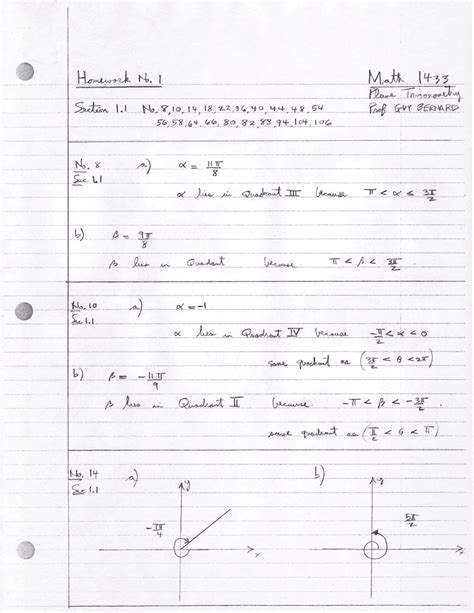 Homework No. 1
Math 1433
Plane Trigonometry
Prof. GUY BERNARD
Section 1.1 No. 8, 10, 14, 18, 22, 36, 40, 44, 48, 54
56, 58, 64, 66, 80, 82, 88, 94, 104, 106
No. 8 a) α = 11π/8
Sec 1.1
α lies in Quadrant III because π < α ≤ 3π/2
b) β = 9π/8
β lies in Quadrant because π < β < 3π/2
No. 10 a) α = -1
Sec 1.1
α lies in Quadrant IV because -π/2 < α < 0
same quadrant as (3π/2 < θ < 2π)
b) β = -11π/9
β lies in Quadrant II because. -π < β < -3π/2
same quadrant as (π/2 < θ < π)
No. 14 a) b)
Sec 1.1
y y
-7π/4 5π/2
x x